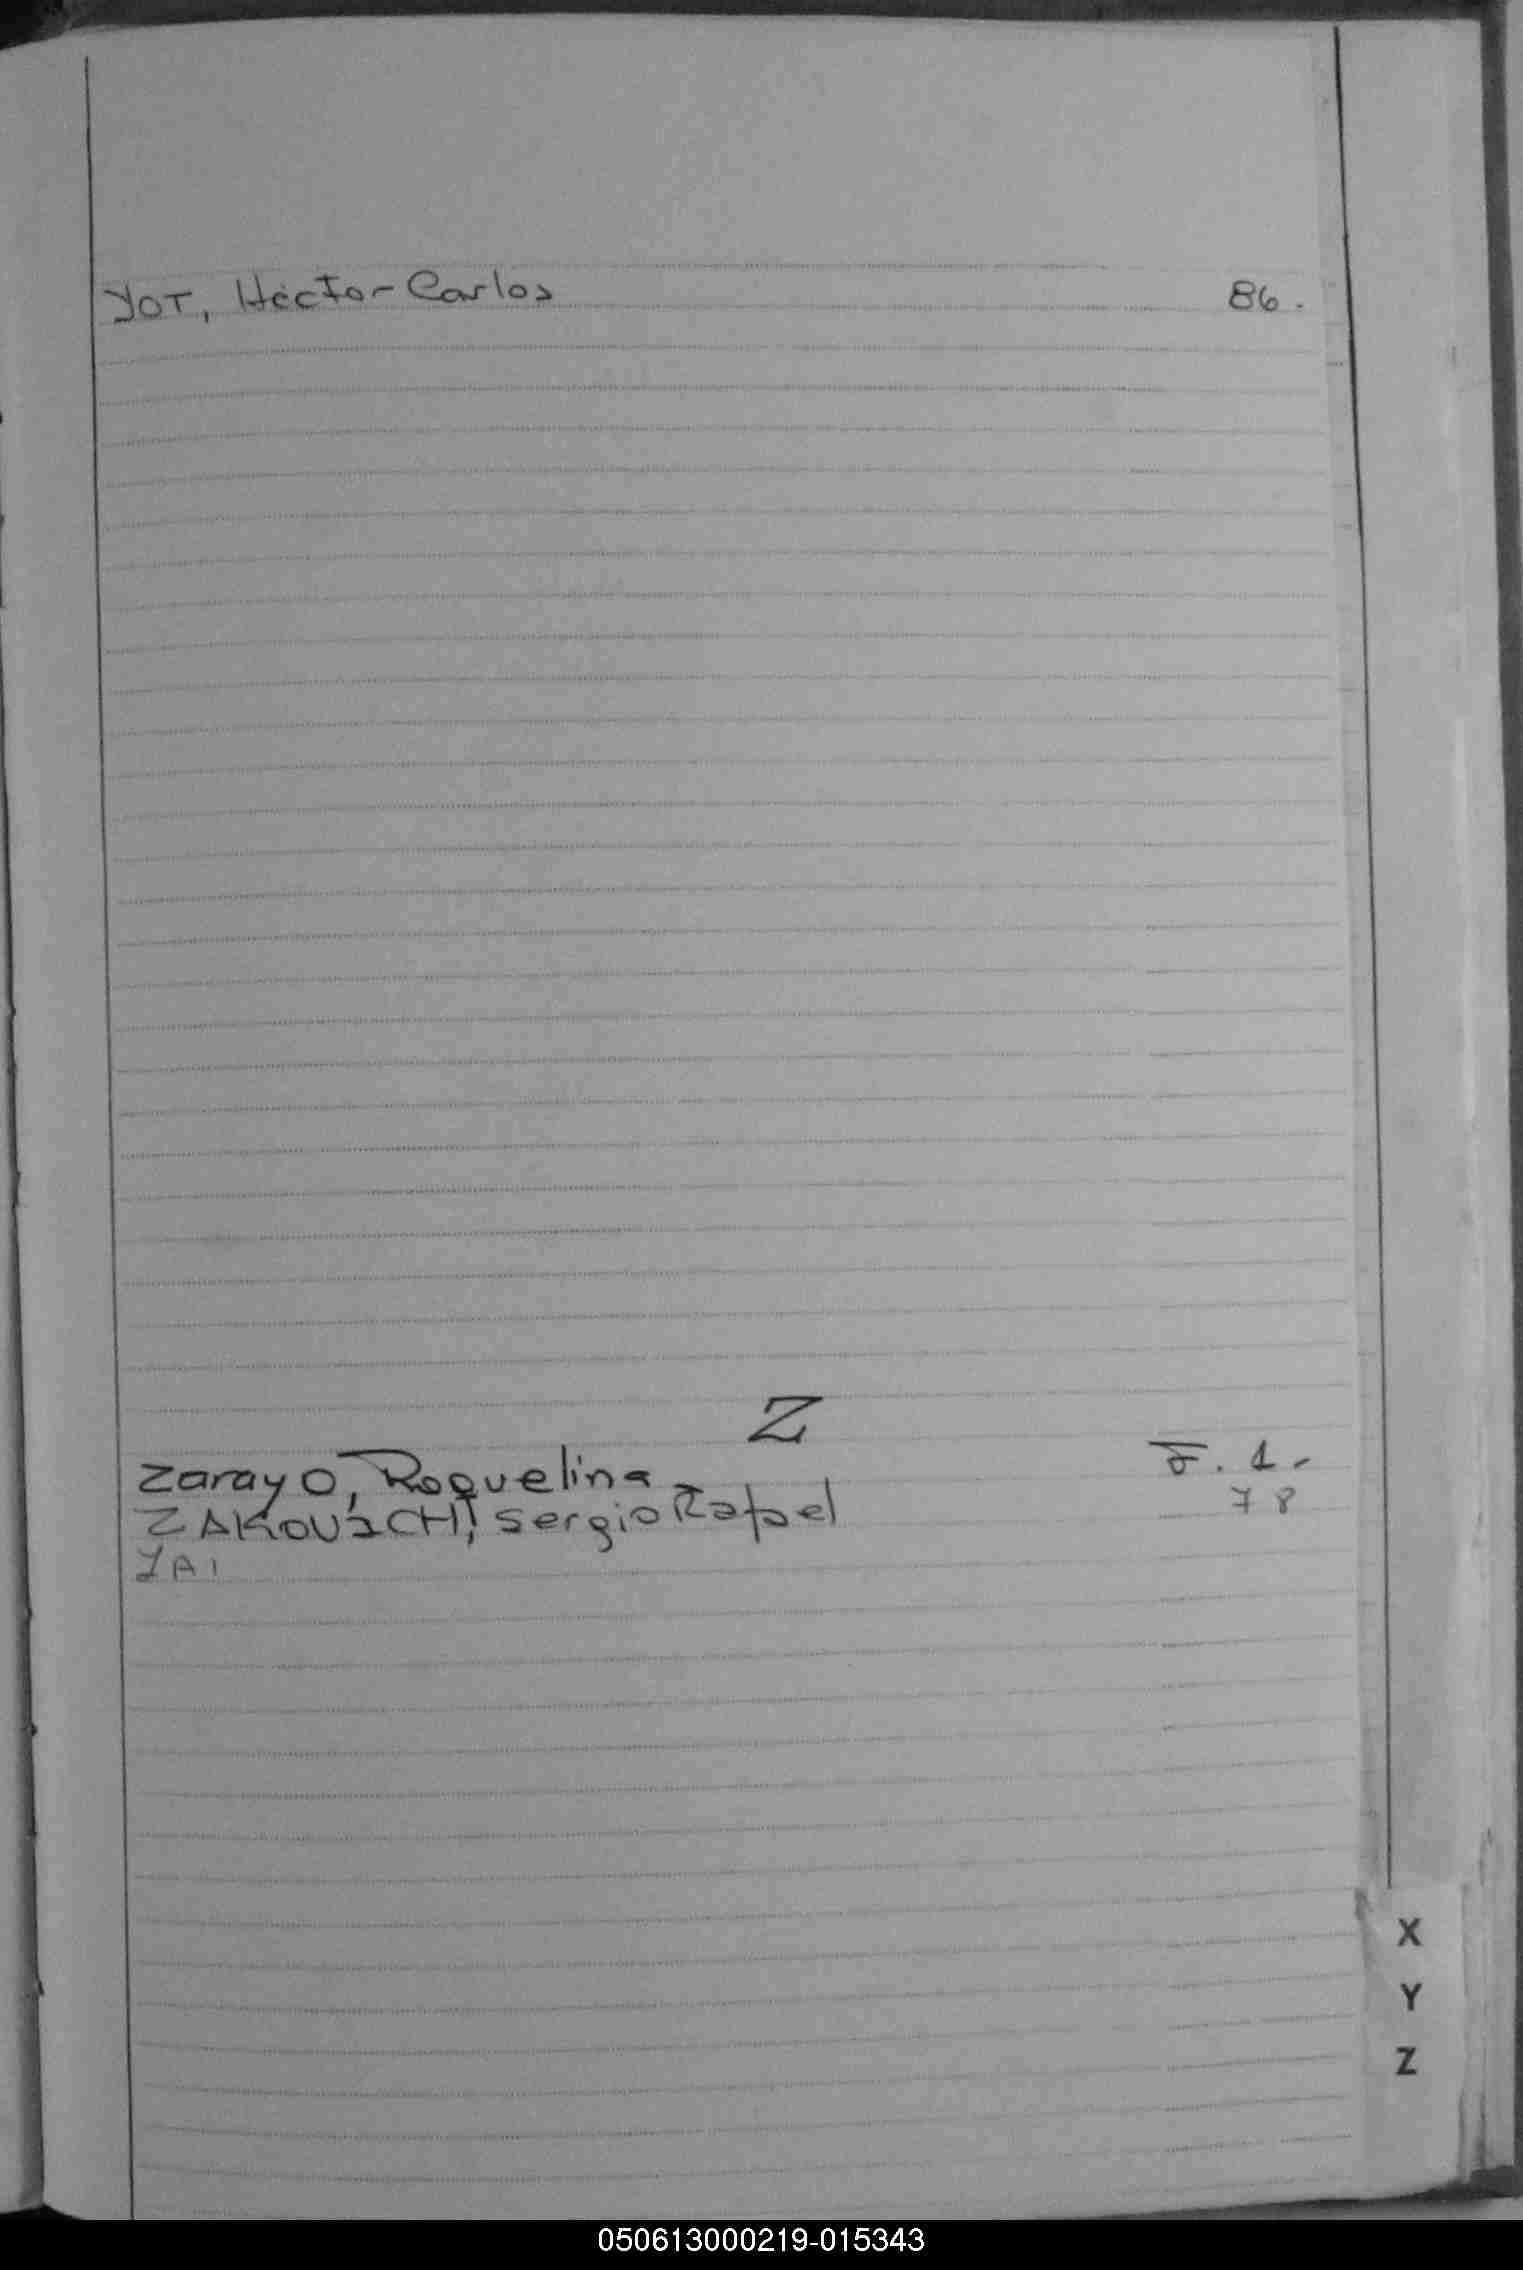 YOT, Héctor Carlos 86.
Z
Zarayo, Roquelina F. 1.
ZAKOVICH, Sergio Rafael 78
ZAI
X
Y
Z
050613000219-015343